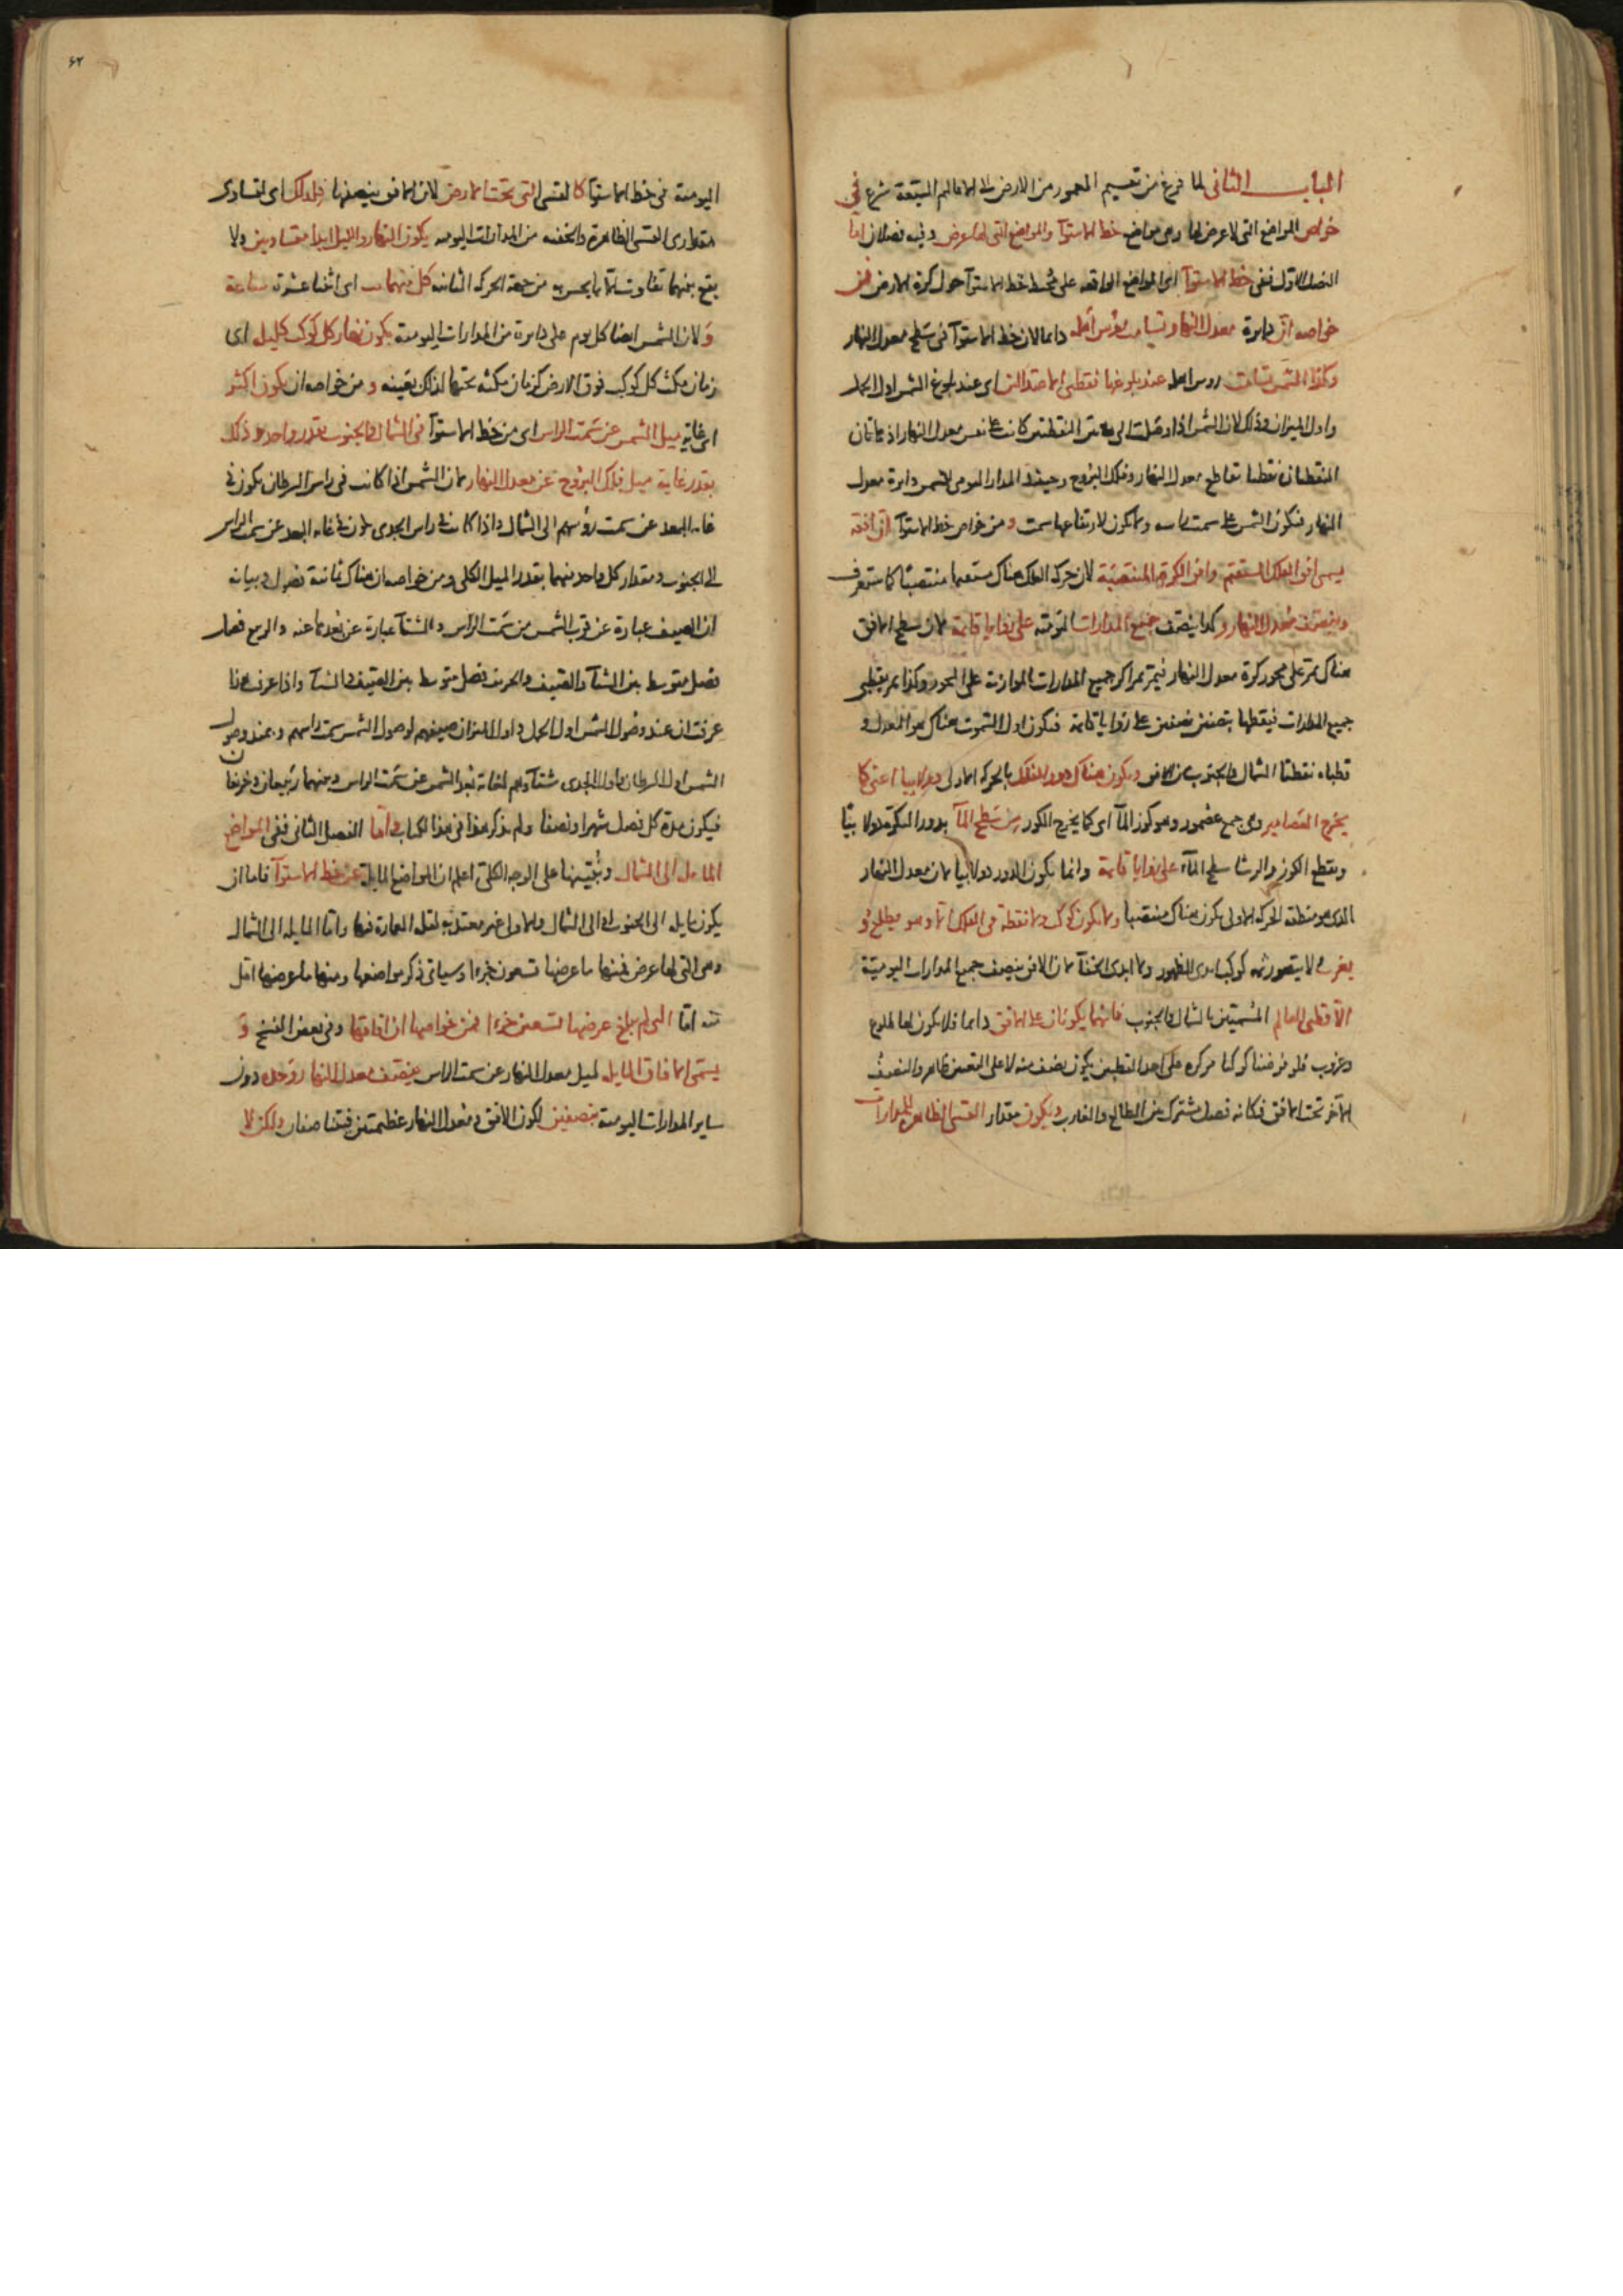 الباب الثانى لما فرغ من تقسيم المعمور من الارض الى الاقاليم السبعة شرع فى
خواص المواضع التى لا عرض لها وهى مواضع خط الاستوآ والمواضع التى لها عرض وفيه فصلان اما
الفصل الاول ففى خط الاستوآ اى المواضع الواقعه على محيط خط الاستوآ حول كرة الارض فمن
خواصه ان دايرة معدل النهار تسامت رؤس اهله دايما لان خط الاستوآ فى سطح معدل النهار
وكذا الشمس تسامت رؤس اهله عند بلوغها نقطتى الاعتدالين اى عند بلوغ الشمس اول الحمل
واول الميزان وذلك لان الشمس اذا وصلت الى هاتين النقطتين كانت على نفس معدل النهار اذ هاتان
النقطتان نقطتا تقاطع معدل النهار وفلك البروج وحينئذ المدار اليومى للشمس دايرة معدل
النهار فتكون الشمس على سمت راسه ولا يكون لارتفاعها سمت ومن خواص خط الاستوآ ان افقه
يسمى افق الفلك المستقيم وافق الكرة المنتصبة لان حركة الفلك هناك مستقيما منتصبا كما ستعرف
وينصف معدل النهار وكذا ينصف جميع المدارات اليوميه على زوايا قايمة لان سطح الافق
هناك يمر على محور كرة معدل النهار فيمر بمراكز جميع المدارات الموازية على المحور وكذا يمر بقطبى
جميع المدارات فيقطعها بنصفين نصفين على زوايا قايمة فيكون اول السموت هناك هو المعدل و
قطباه نقطتا الشمال والجنوب من الافق ويكون هناك دور الفلك بالحركه الاولى دولابيا اعنى كما
يخرج العصامير وهى جمع عصمور وهو كوز المآ اى كما يخرج الكوز من سطح المآ بدور البكرة دولابيا
ويقطع الكوز والرشا سطح المآء على زوايا قايمة وانما يكون الدور دولابيا لان معدل النهار
الذى هو منطقة الحركه الاولى يكون هناك منتصبا ولا يكون كوكب ولا نقطة فى الفلك الا وهو يطلع و
يغرب لا يتصور ثمه كوكب ابدى الظهور ولا ابدى الخفآ لان الافق ينصف جميع المدارات اليوميّة
الا قطبى العالم المسميين بالشمال والجنوب فانهما يكونان على الافق دايما فلا يكون لهما طلوع
وغروب فلو فرضنا كوكبا مركزه على احد القطبين يكون نصف منه لا على التعيين ظاهر والنصف
الآخر تحت الافق فكانه فصل مشترك بين الطالع والغارب ويكون مقدار القسى الظاهرة للمدارات
٦٢
اليومية فى خط الاستوآ كالقسى التى تحت الارض لان الافق ينصفها فلذلك اى لتساوى
مقدارى القسى الظاهرة والخفيه من المدارات اليوميه يكون النهار والليل ابدا متساويين ولا
يقع بينهما تفاوت الا ما يحس به من جهة الحركه الثانيه كل منهما يب اى اثنتا عشرة ساعة
ولان الشمس ايضا كل يوم على دايرة من المدارات اليومية يكون نهار كل كوكب كليله اى
زمان مكث كل كوكب فوق الارض كزمان مكثه تحتها لذلك بعينه ومن خواصه ان يكون اكثر
اى غاية ميل الشمس عن سمت الراس اى من خط الاستوآ فى الشمال والجنوب بقدر واحد وذلك
بقدر غاية ميل فلك البروج عن معدل النهار لان الشمس اذا كانت فى راس السرطان يكون فى
غاية البعد عن سمت رؤسهم الى الشمال واذا كانت فى راس الجدى يكون فى غاية البعد عن سمت الراس
الى الجنوب ومقدار كل واحد منهما بقدر الميل الكلى ومن خواصه ان هناك ثمانية فصول وبيانه
ان الصيف عبارة عن قرب الشمس من سمت الراس والشتآ عبارة عن بعدها عنه والربيع فصل
فصل متوسط بين الشتآ والصيف والخريف فصل متوسط بين الصيف والشتآ واذا عرفت هذا
عرفت ان عند وصول الشمس اول الحمل واول الميزان صيفهم لوصول الشمس سمت راسهم وعند وصول
الشمس اول السرطان واول الجدى شتآؤهم لغاية بعد الشمس عن سمت الراس وبينهما ربيعان وخريفان
فيكون مدة كل فصل شهرا ونصفا ولم يذكر هذا فى هذا الكتاب واما الفصل الثانى ففى المواضع
المايله الى الشمال ونبينها على الوجه الكلى اعلم ان المواضع المايلة عن خط الاستوآ فاما ان
يكون مايله الى الجنوب او الى الشمال والاول غير معتد به لقلة العمارة فيها واما المايله الى الشمال
وهى التى لها عرض فمنها ما عرضها تسعون جزءا وسياتى ذكر مواضعها ومنها ما عرضها اقل
منه اما التى لم يبلغ عرضها تسعين جزءا فمن خواصها ان افاقها وفى بعض النسخ و
يسمى الافاق المايله لميل معدل النهار عن سمت الراس ينصف معدل النهار وحده دون
ساير المدارات اليومية بنصفين لكون الافق ومعدل النهار عظيمتين فيتناصفان ولكن لا